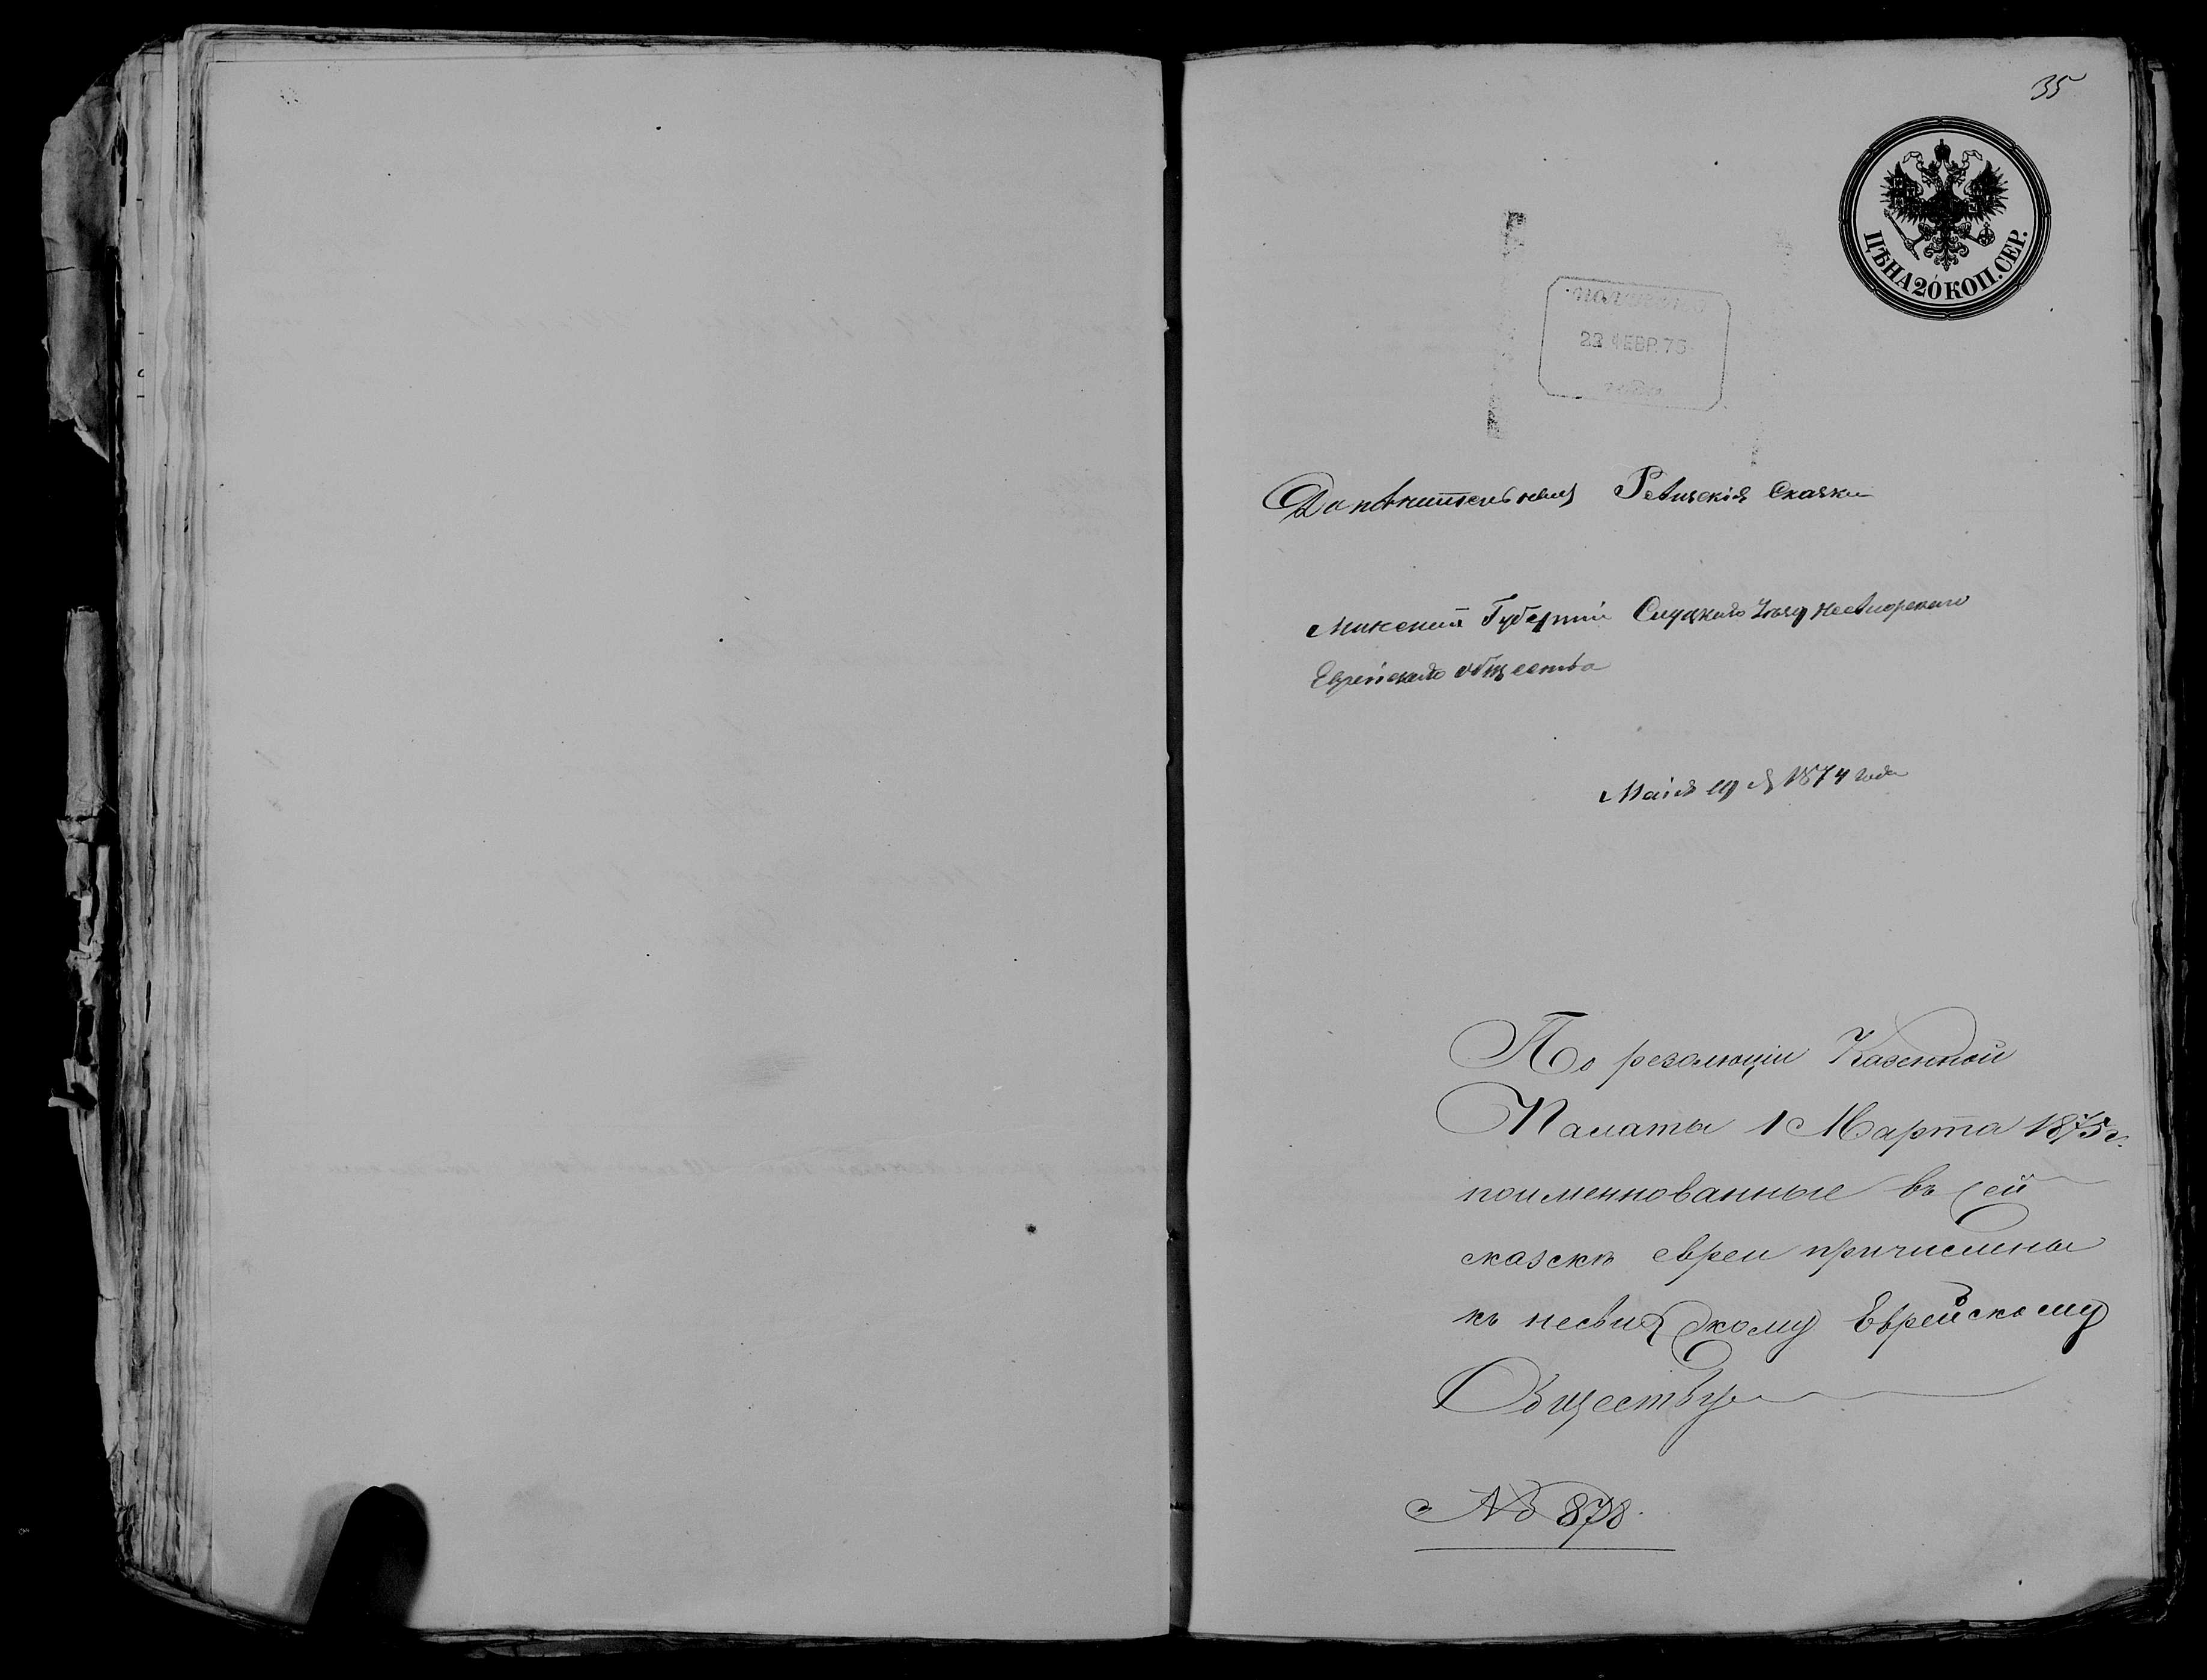 35
ЦѢНА 20 КОП. СЕР.
получено
22 ФЕВР. 75
года
Дополнительная Ревизскія Сказки
Минской Губерніи Слуцкаго
Еврейскаго общества
Маія 1874 года
По резолюціи Казенной
Палаты 1 Марта 1875 г.
поименнованные въ сей
сказкѣ евреи причислены
къ несвижскому Еврейскому
Обществу
№ 878.